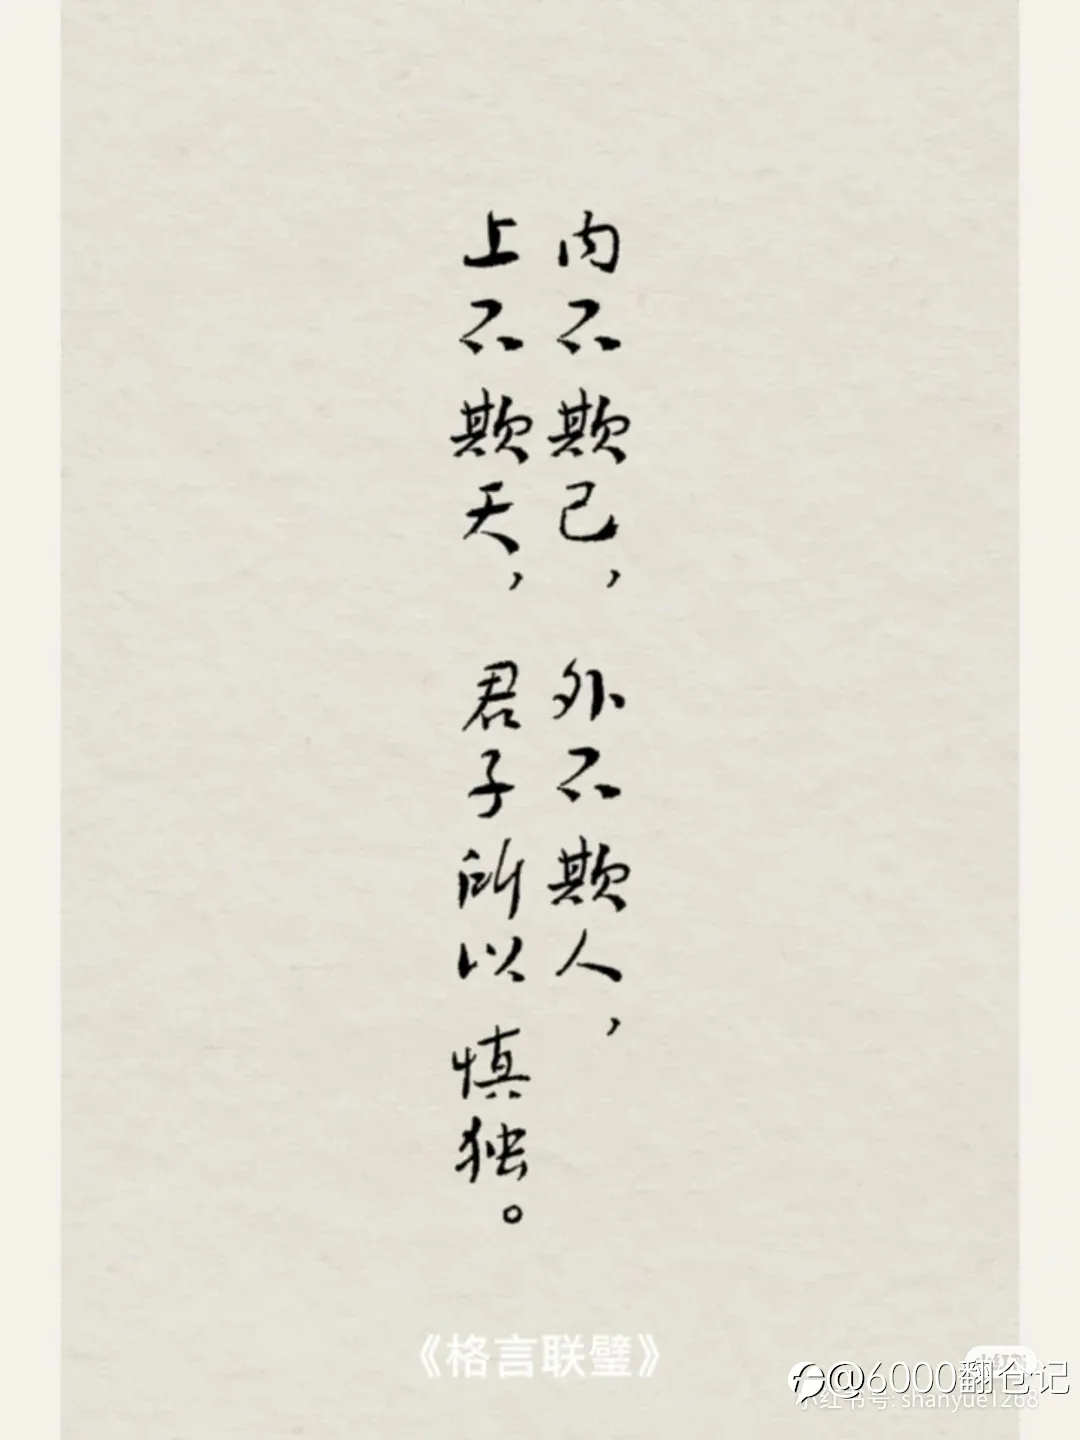 内不欺己，外不欺人，
上不欺天，君子所以慎独。
《格言联璧》
小红书
@6000翻仓记
小红书号: shanyue1268